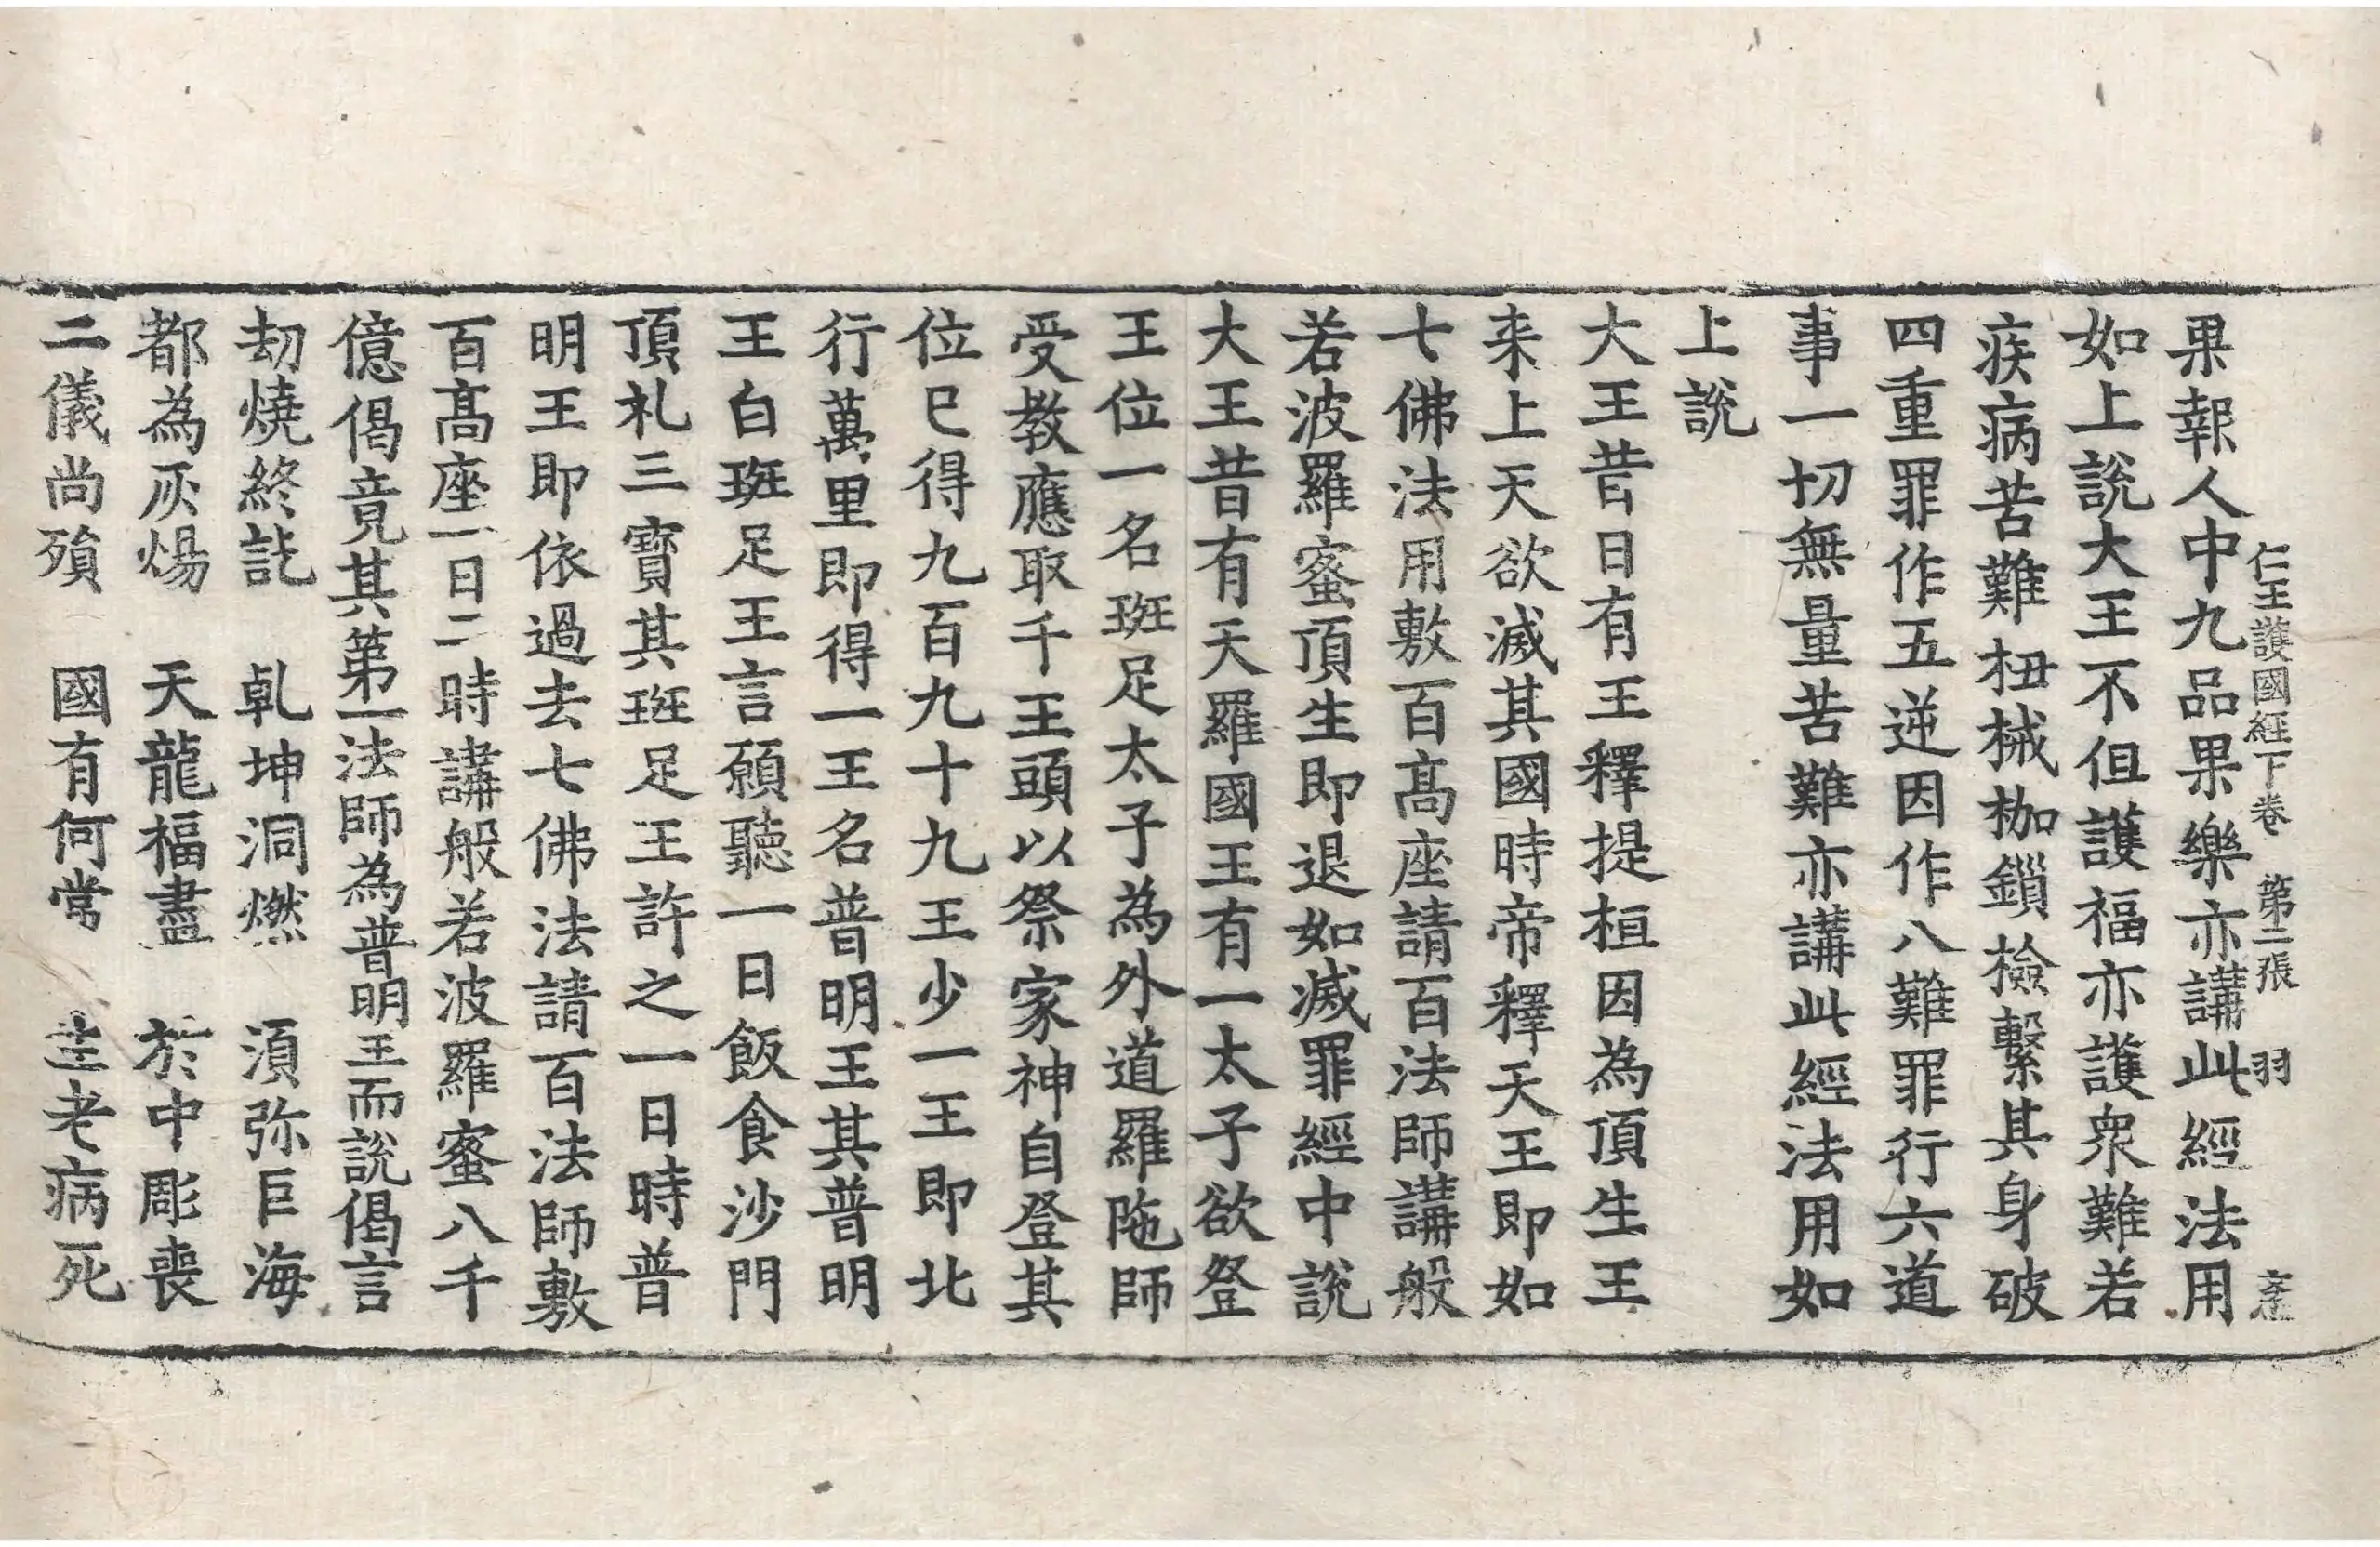 仁王護國經下卷　第二張　羽
果報人中九品果樂亦講此經法用
如上說大王不但護福亦護衆難若
疾病苦難杻械枷鎖檢繫其身破
四重罪作五逆因作八難罪行六道
事一切無量苦難亦講此經法用如
上說
大王昔日有王釋提桓因為頂生王
来上天欲滅其國時帝釋天王即如
七佛法用敷百髙座請百法師講般
若波羅蜜頂生即退如滅罪經中說
大王昔有天羅國王有一太子欲登
王位一名班足太子為外道羅陁師
受教應取千王頭以祭家神自登其
位已得九百九十九王少一王即北
行萬里即得一王名普明王其普明
王白班足王言願聽一日飯食沙門
頂礼三寶其班足王許之一日時普
明王即依過去七佛法請百法師敷
百髙座一日二時講般若波羅蜜八千
億偈竟其第一法師為普明王而說偈言
劫燒終訖　乹坤洞燃　湏弥巨海
都為灰煬　天龍福盡　於中彫喪
二儀尚殞　國有何常　生老病死